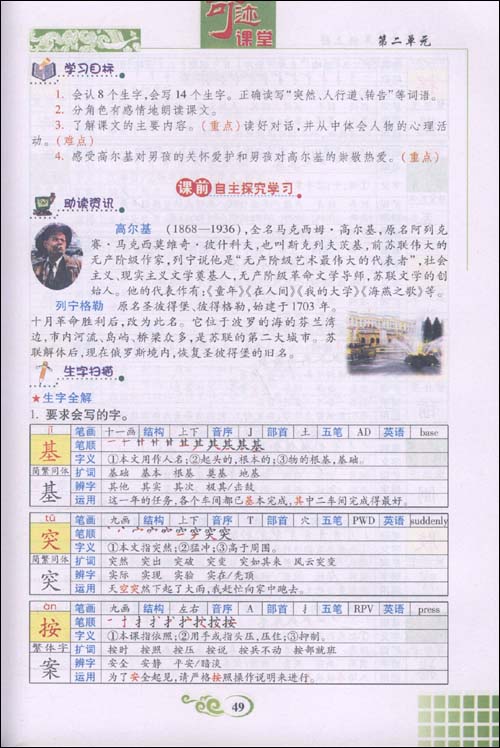 可迹
课堂
第二单元
学习目标
1. 会认8个生字,会写14个生字。正确读写“突然、人行道、转告”等词语。
2. 分角色有感情地朗读课文。
3. 了解课文的主要内容。(重点)读好对话,并从中体会人物的心理活
动。(难点)
4. 感受高尔基对男孩的关怀爱护和男孩对高尔基的崇敬热爱。(重点)
课前 自主探究学习
助读资识
高尔基 (1868—1936),全名马克西姆·高尔基,原名阿列克
赛·马克西莫维奇·彼什科夫,也叫斯克列夫茨基,前苏联伟大的
无产阶级作家,列宁说他是“无产阶级艺术最伟大的代表者”,社会
主义、现实主义文学奠基人,无产阶级革命文学导师,苏联文学的创
始人。他的代表作有:《童年》《在人间》《我的大学》《海燕之歌》等。
列宁格勒 原名圣彼得堡、彼得格勒,始建于1703年。
十月革命胜利后,改为此名。它位于波罗的海的芬兰湾
边,市内河流、岛屿、桥梁众多,是苏联的第二大城市。苏
联解体后,现在俄罗斯境内,恢复圣彼得堡的旧名。
生字扫描
★生字全解
1. 要求会写的字。
jī 笔画 十一画 结构 上下 音序 J 部首 土 五笔 AD 英语 base
基 笔顺
字义 ①本文用作人名;②起头的,根本的;③物的根基,基础。
简繁同体 扩词 基础 基本 根基 奠基 地基
基 辨字 其他 其实 其次 极其/击鼓
运用 这一年的任务,各个车间都已基本完成,其中二车间完成得最好。
tū 笔画 九画 结构 上下 音序 T 部首 穴 五笔 PWD 英语 suddenly
突 笔顺
字义 ①本文指突然;②猛冲;③高于周围。
简繁同体 扩词 突然 突出 突破 突变 突如其来 风云突变
突 辨字 实际 实现 实验 实在/秃顶
运用 天空突然下起了大雨,我赶忙向家中跑去。
àn 笔画 九画 结构 左右 音序 A 部首 扌 五笔 RPV 英语 press
按 笔顺
字义 ①本课指依照;②用手或指头压,压住;③抑制。
繁体字 扩词 按时 按照 按压 按说 按兵不动 按部就班
案 辨字 安全 安静 平安/暗淡
运用 为了安全起见,请严格按照操作说明来进行。
49